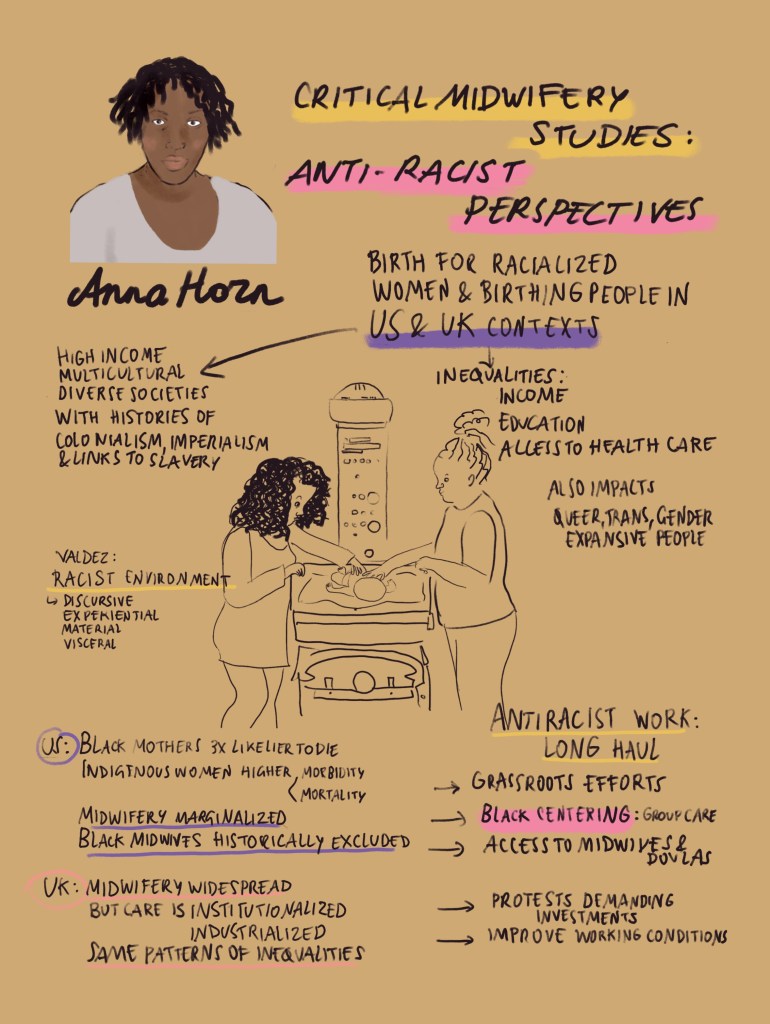 CRITICAL MIDWIFERY
STUDIES:
ANTI-RACIST
PERSPECTIVES
Anna Horn
BIRTH FOR RACIALIZED
WOMEN & BIRTHING PEOPLE IN
US & UK CONTEXTS
HIGH INCOME
MULTICULTURAL
DIVERSE SOCIETIES
WITH HISTORIES OF
COLONIALISM, IMPERIALISM
& LINKS TO SLAVERY
INEQUALITIES:
INCOME
EDUCATION
ACCESS TO HEALTH CARE
ALSO IMPACTS
QUEER, TRANS, GENDER
EXPANSIVE PEOPLE
VALDEZ:
RACIST ENVIRONMENT
↳ DISCURSIVE
EXPERIENTIAL
MATERIAL
VISCERAL
US: BLACK MOTHERS 3X LIKELIER TO DIE
INDIGENOUS WOMEN HIGHER < MORBIDITY
MORTALITY
MIDWIFERY MARGINALIZED
BLACK MIDWIVES HISTORICALLY EXCLUDED
UK: MIDWIFERY WIDESPREAD
BUT CARE IS INSTITUTIONALIZED
INDUSTRIALIZED
SAME PATTERNS OF INEQUALITIES
ANTIRACIST WORK:
LONG HAUL
→ GRASSROOTS EFFORTS
→ BLACK CENTERING: GROUP CARE
→ ACCESS TO MIDWIVES &
DOULAS
→ PROTESTS DEMANDING
INVESTMENTS
→ IMPROVE WORKING CONDITIONS